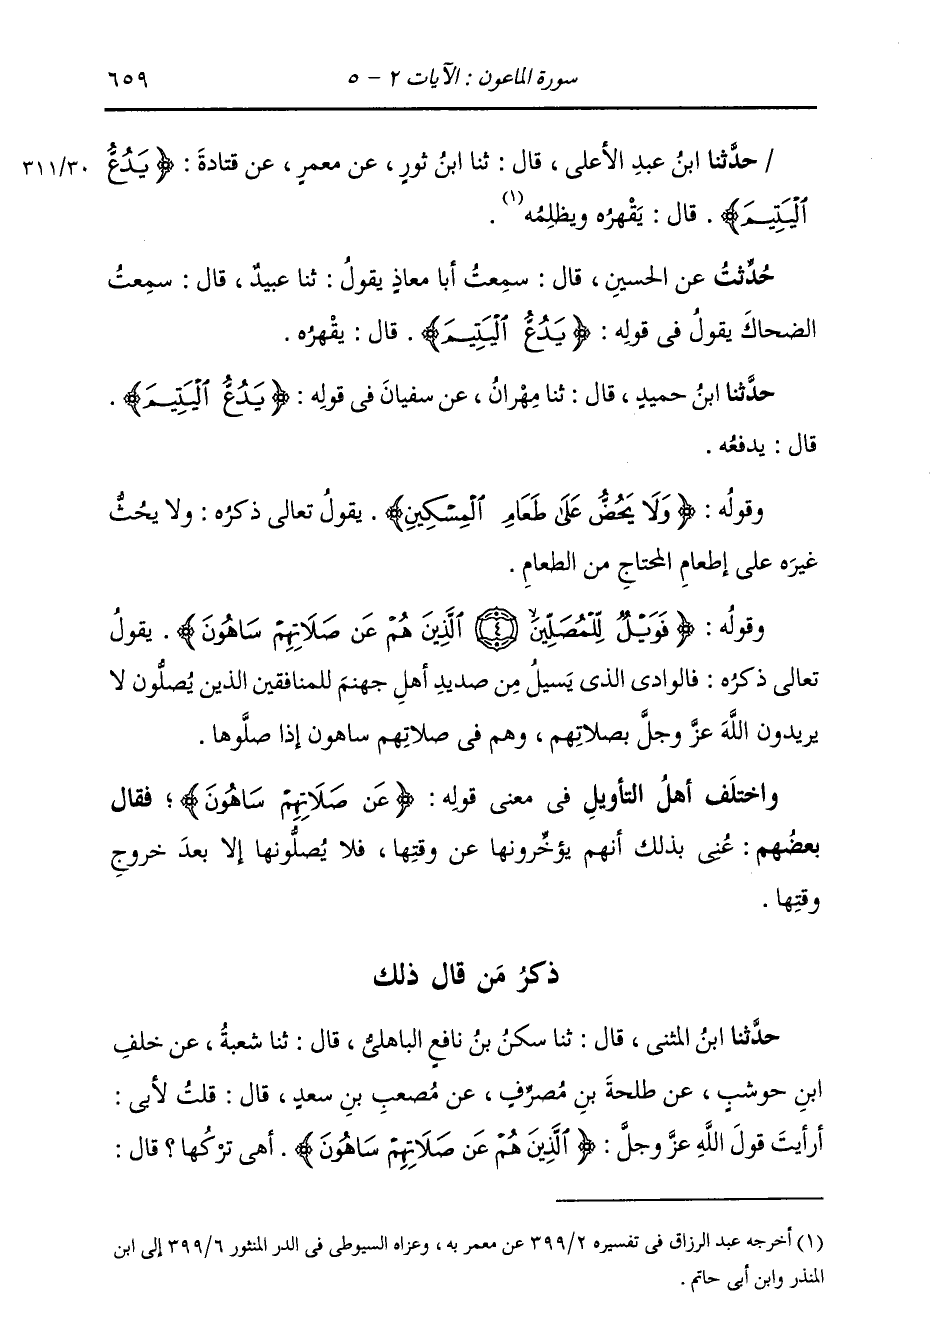 سورة الماعون : الآيات ٢ - ٥ ٦٥٩
/ حدَّثنا ابنُ عبدِ الأعلى ، قال : ثنا ابنُ ثورٍ ، عن معمرٍ ، عن قتادةَ : ﴿ يَدُعُّ ٣١١/٣٠
ٱلْيَتِيمَ ﴾ . قال : يَقْهرُه ويظلِمُه(١) .
حُدِّثتُ عن الحسينِ ، قال : سمِعتُ أبا معاذٍ يقولُ : ثنا عبيدٌ ، قال : سمِعتُ
الضحاكَ يقولُ فى قولِه : ﴿ يَدُعُّ ٱلْيَتِيمَ ﴾ . قال : يقْهرُه .
حدَّثنا ابنُ حميدٍ ، قال : ثنا مِهْرانُ ، عن سفيانَ فى قولِه : ﴿ يَدُعُّ ٱلْيَتِيمَ ﴾ .
قال : يدفعُه .
وقولُه : ﴿ وَلَا يَحُضُّ عَلَىٰ طَعَامِ ٱلْمِسْكِينِ ﴾ . يقولُ تعالى ذكرُه : ولا يحُثُّ
غيرَه على إطعامِ المحتاجِ من الطعامِ .
وقولُه : ﴿ فَوَيْلٌ لِّلْمُصَلِّينَۙ ٤ ٱلَّذِينَ هُمْ عَن صَلَاتِهِمْ سَاهُونَ ﴾ . يقولُ
تعالى ذكرُه : فالوادى الذى يَسيلُ مِن صديدِ أهلِ جهنمَ للمنافقين الذين يُصلُّون لا
يريدون اللَّهَ عزَّ وجلَّ بصلاتِهم ، وهم فى صلاتِهم ساهون إذا صلَّوها .
واختلَف أهلُ التأويلِ فى معنى قولِه : ﴿ عَن صَلَاتِهِمْ سَاهُونَ ﴾ ؛ فقال
بعضُهم : عُنِى بذلك أنهم يؤخِّرونها عن وقتِها ، فلا يُصلُّونها إلا بعدَ خروجِ
وقتِها .
ذكرُ مَن قال ذلك
حدَّثنا ابنُ المثنى ، قال : ثنا سكنُ بنُ نافعٍ الباهلىُّ ، قال : ثنا شعبةُ ، عن خلفِ
ابنِ حوشبٍ ، عن طلحةَ بنِ مُصرِّفٍ ، عن مُصعبِ بنِ سعدٍ ، قال : قلتُ لأبى :
أرأيتَ قولَ اللَّهِ عزَّ وجلَّ : ﴿ ٱلَّذِينَ هُمْ عَن صَلَاتِهِمْ سَاهُونَ ﴾ . أهى ترْكُها ؟ قال :
(١) أخرجه عبد الرزاق فى تفسيره ٣٩٩/٢ عن معمر به ، وعزاه السيوطى فى الدر المنثور ٣٩٩/٦ إلى ابن
المنذر وابن أبى حاتم .